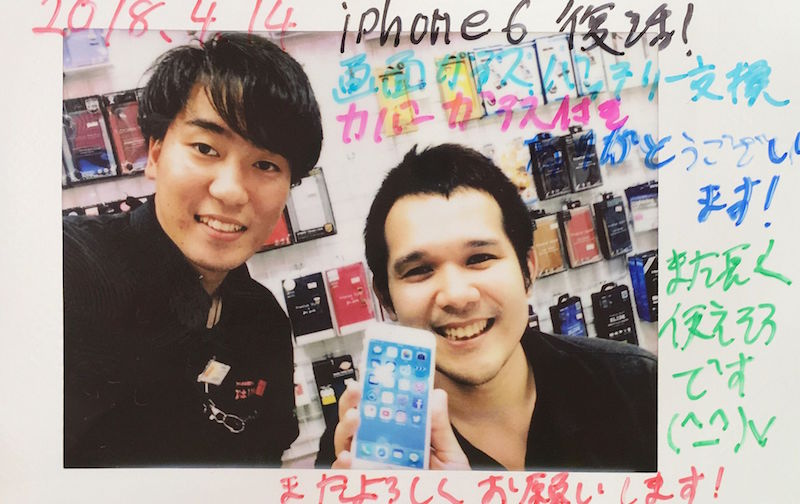 2018.4.14 iphone6 復活!
画面ガラスバッテリー交換
カバーガラス付き
ありがとうござい
ます!
また長く
使えそう
です
(^_^)v
またよろしくお願いします!